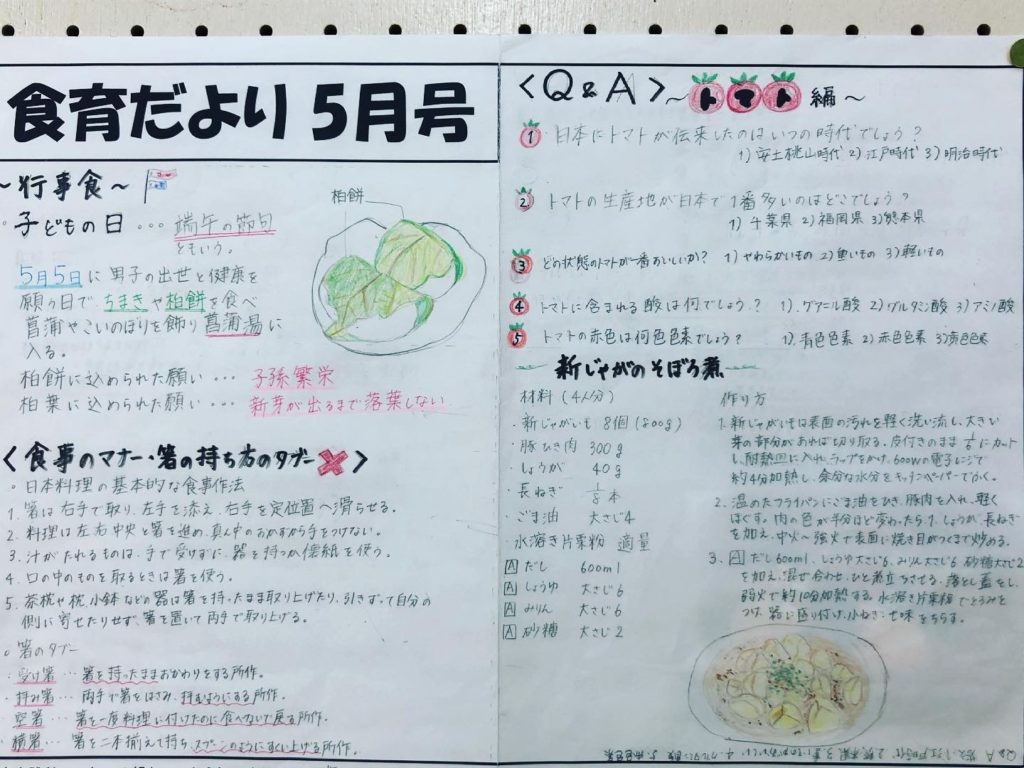 食育だより 5月号
～行事食～
・子どもの日 … 端午の節句
ともいう。
5月5日に男子の出世と健康を
願う日で、ちまきや柏餅を食べ
菖蒲やこいのぼりを飾り菖蒲湯に
入る。
柏餅に込められた願い … 子孫繁栄
柏葉に込められた願い … 新芽が出るまで落葉しない
柏餅
〈食事のマナー・箸の持ち方のタブー〉
・日本料理の基本的な食事作法
1. 箸は右手で取り、左手を添え、右手を定位置へ滑らせる。
2. 料理は左右中央と箸を進め、真ん中のおかずから手をつけない。
3. 汁がたれるものは、手で受けずに、器を持つか懐紙を使う。
4. 口の中のものを取るときは箸を使う。
5. 茶椀や椀、小鉢などの器は箸を持ったまま取り上げたり、引きずって自分の
側に寄せたりせず、箸を置いて両手で取り上げる。
○箸のタブー
・受け箸 … 箸を持ったままおかわりをする所作。
・拝み箸 … 両手で箸をはさみ、拝むようにする所作。
・空箸 … 箸を一度料理に付けたのに食べないで戻る所作。
・横箸 … 箸を二本揃えて持ち、スプーンのようにすくい上げる所作。
〈Q&A〉～トマト編～
1 ・日本にトマトが伝来したのはいつの時代でしょう？
1) 安土桃山時代 2) 江戸時代 3) 明治時代
2 トマトの生産地が日本で1番多いのはどこでしょう？
1) 千葉県 2) 福岡県 3) 熊本県
3 どの状態のトマトが一番おいしいか？ 1) やわらかいもの 2) 重いもの 3) 軽いもの
4 トマトに含まれる酸は何でしょう？ 1) グアニル酸 2) グルタミン酸 3) アミノ酸
5 トマトの赤色は何色色素でしょう？ 1) 青色色素 2) 赤色色素 3) 黄色色素
新じゃがのそぼろ煮
材料 (4人分)
・新じゃがいも 8個 (800g)
・豚ひき肉 300g
・しょうが 40g
・長ねぎ 1/8本
・ごま油 大さじ4
・水溶き片栗粉 適量
A だし 600ml
A しょうゆ 大さじ6
A みりん 大さじ6
A 砂糖 大さじ2
作り方
1. 新じゃがいもは表面の汚れを軽く洗い流し、大きい
芽の部分があれば切り取る。皮付きのまま にカット
し、耐熱皿に入れ、ラップをかけ、600wの電子レンジで
約4分加熱し、余分な水分をキッチンペーパーでふく。
2. 温めたフライパンにごま油をひき、豚肉を入れ、軽く
ほぐす。肉の色が半分ほど変わったら1、しょうが、長ねぎ
を加え、中火～強火で表面に焼き目がつくまで炒める。
3. A だし600ml、しょうゆ大さじ6、みりん大さじ6、砂糖大さじ2
を加え、混ぜ合わせ、ひと煮立ちさせる。落とし蓋をし、
弱火で約10分加熱する。水溶き片栗粉でとろみを
つけ、器に盛り付け、小ねぎ、七味をちらす。